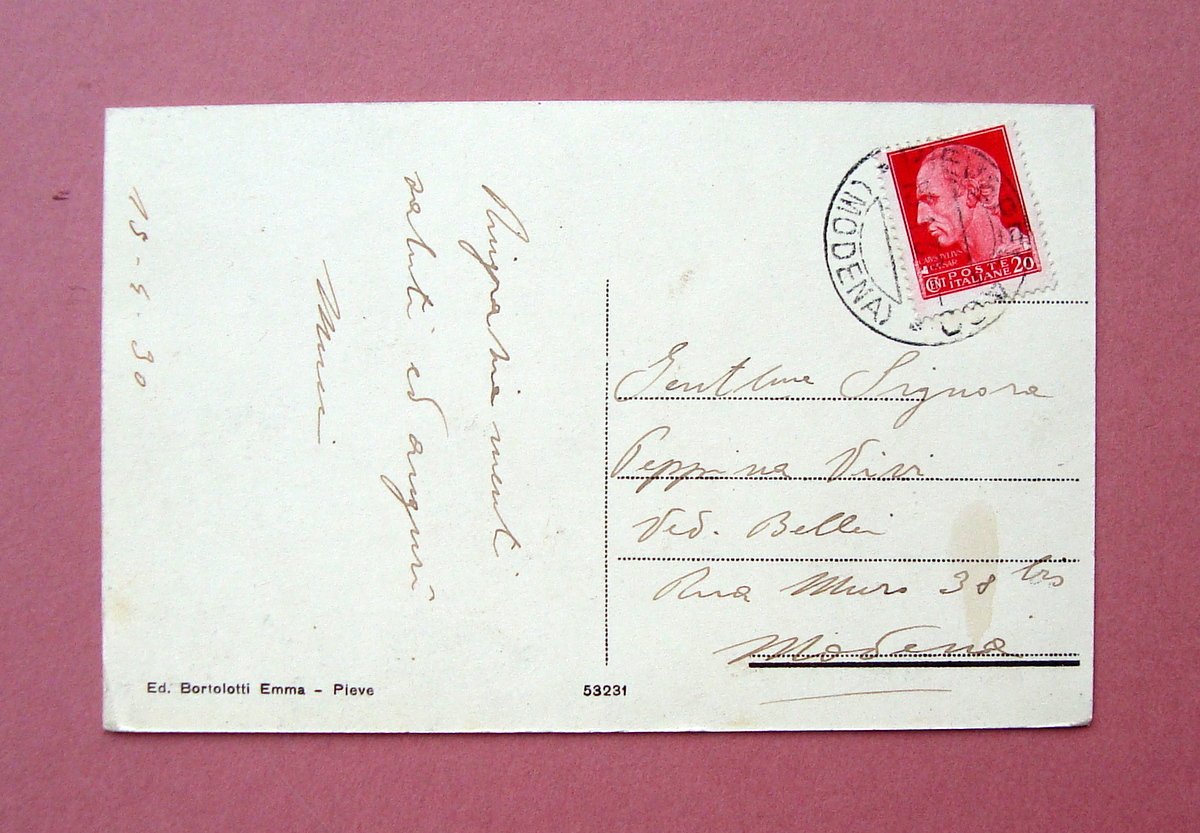 Ringraziamenti
saluti ed auguri
15-5-30
(MODENA)
CAIVS IVLIVS
CAESAR
CENT POSTE 20
ITALIANE
Gentlma Signora
Peppina Vivi
Ved. Bellei
Rua Muro 38 bis
Modena
Ed. Bortolotti Emma - Pieve
53231